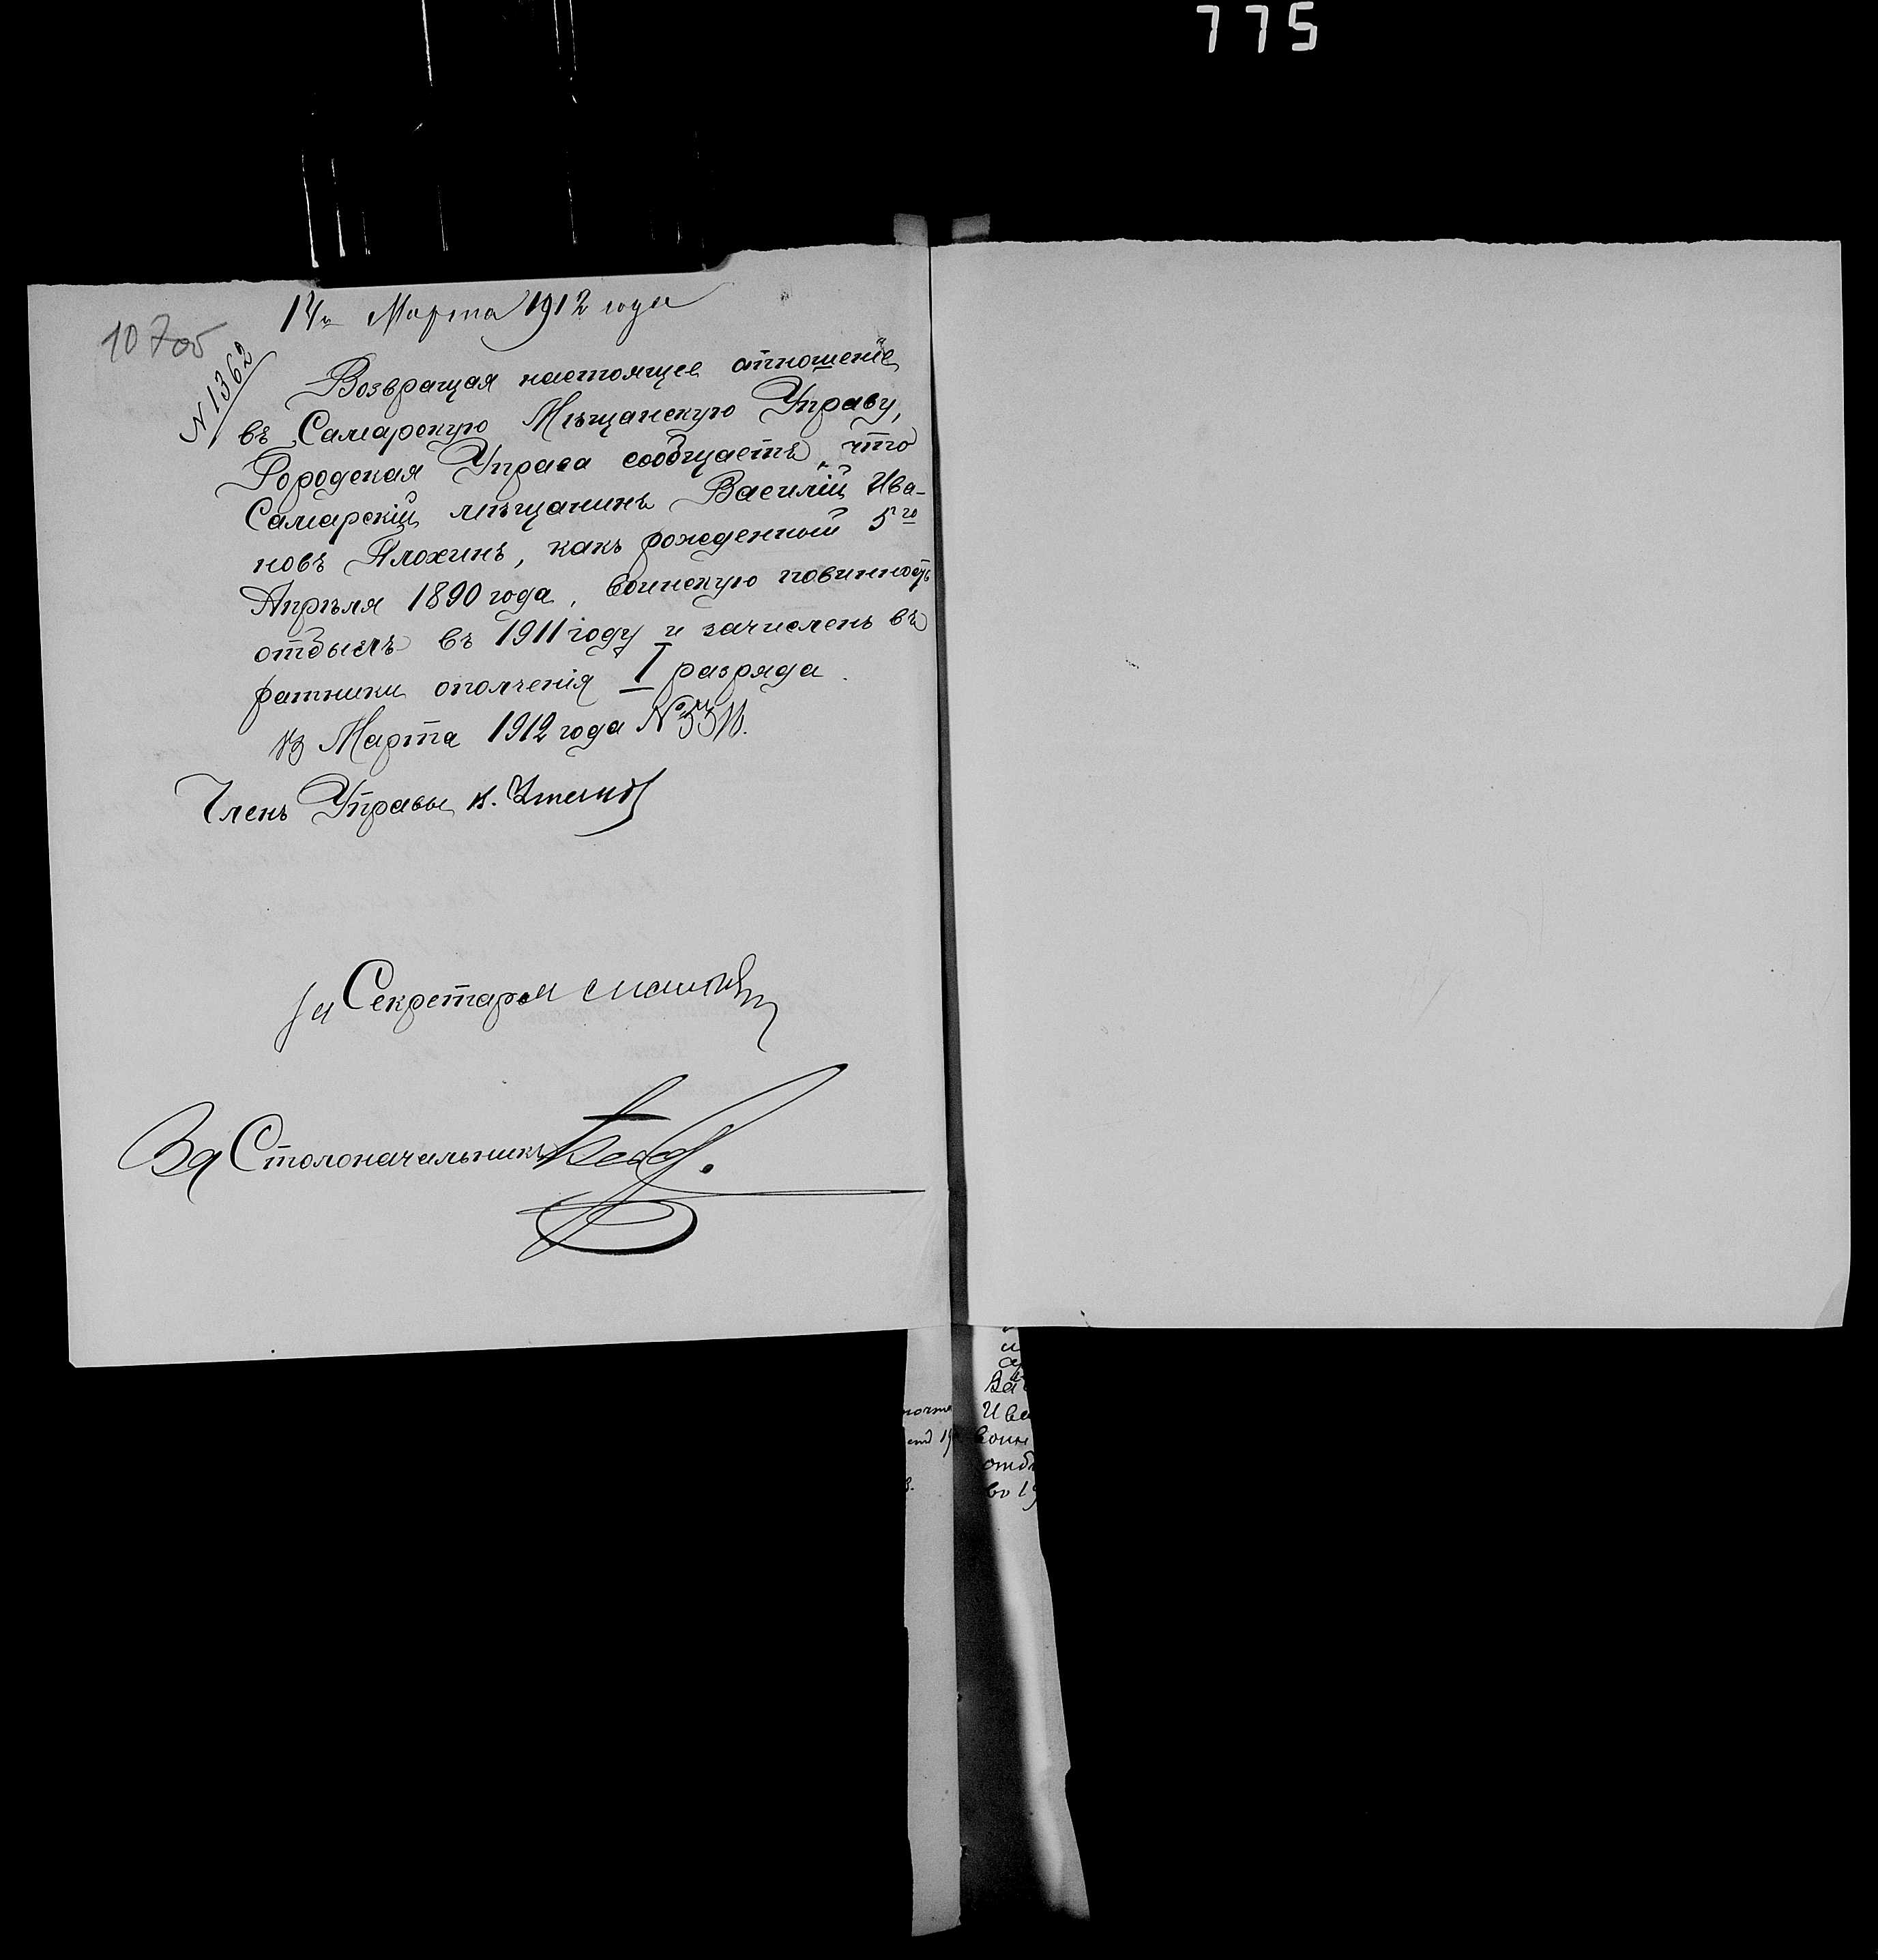 775
14 Марта 1912 года
10700
N 1362
Возвращая настоящее отношенiе
въ Самарскую Мѣщанскую Управу,
Городская Управа сообщаетъ, что
Самарскiй мѣщанинъ Василiй Ива-
новъ Плохинъ, какъ рожденный 5го
Апрѣля 1890 года, воинскую повинность
отбылъ въ 1911 году и зачисленъ въ
ратники ополченiя I разряда.
13 Марта 1912 года №
Членъ Управы
За Секретаря
За Столоначальника
Ива
воин
отб
во 19